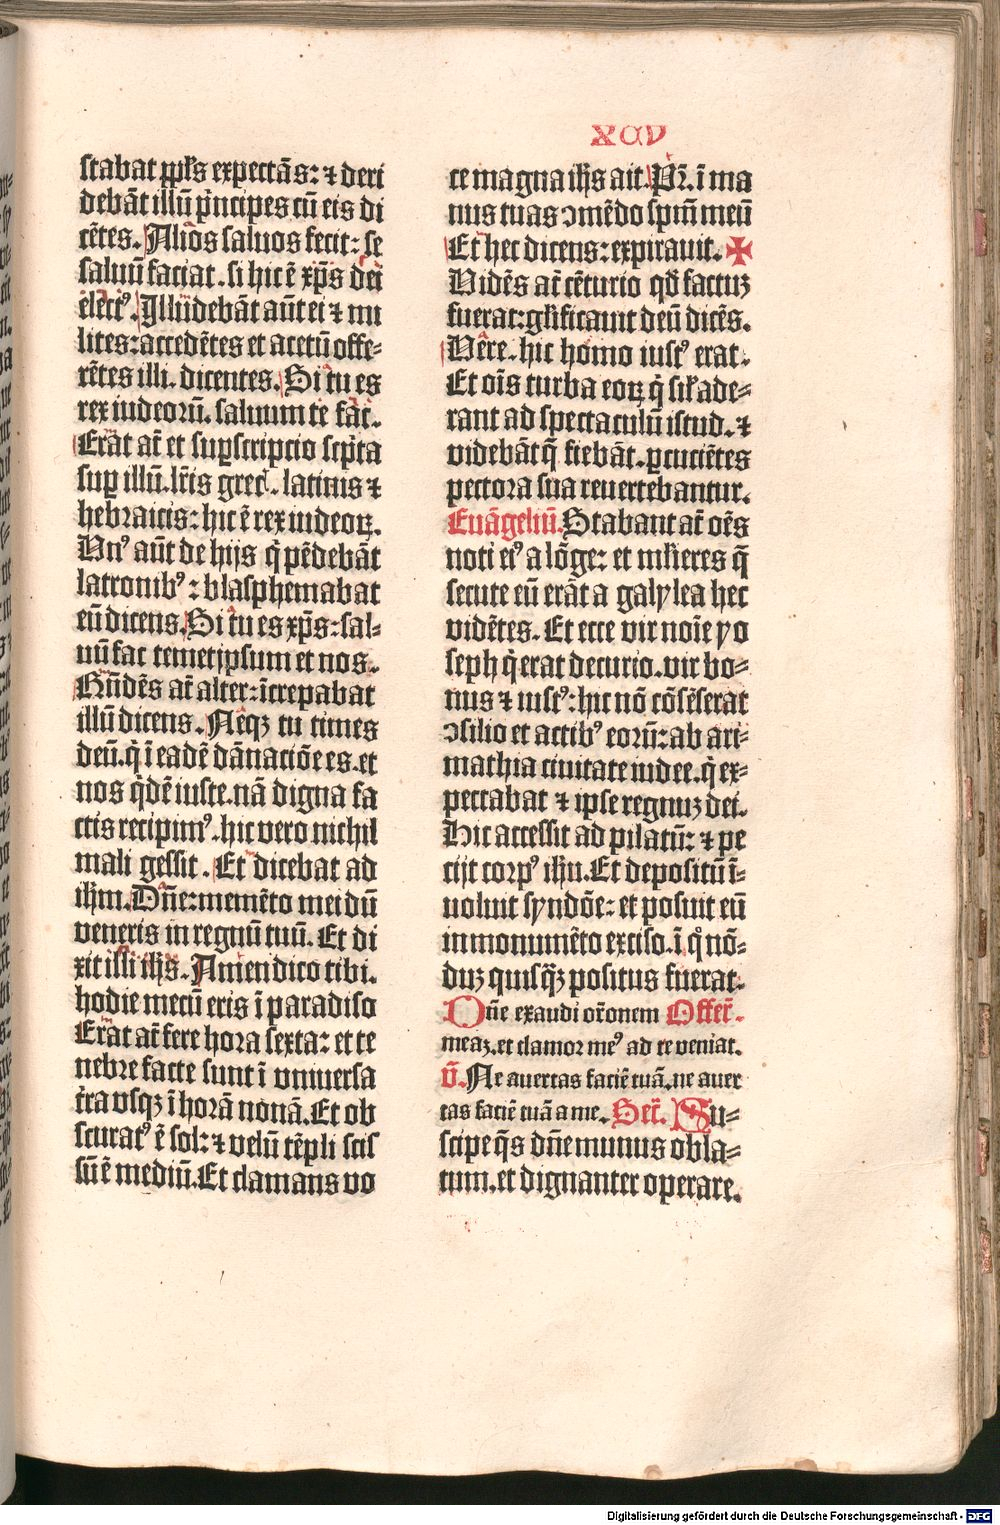 xcv
stabat ppl̄s expectās: ⁊ deri
debāt illū p̄ncipes cū eis di
cētes. Alios saluos fecit: se
saluū faciat. si hic ē xp̄s dei
elect⁹. Illudebāt aūt ei ⁊ mi
lites: accedētes et acetū offe-
rētes illi. dicentes. Si tu es
rex iudeorū. saluum te fac̄.
Erāt at̄ et sup̱scripcio scp̄ta
sup̱ illū. lr̄is grec̄. latinis ⁊
hebraicis: hic ē rex iudeoꝝ.
Vn⁹ aūt de hijs q̄ pēdebāt
latronib⁹: blasphemabat
eū dicens. Si tu es xp̄s: sal-
uū fac temetipsum et nos.
Rn̄dēs at̄ alter: īcrepabat
illū dicens. Neqꝫ tu times
deū. q̇ ī eadē dānaciōe es. et
nos q̇dē iuste. nā digna fa
ctis recipim⁹. hic vero nichil
mali gessit. Et dicebat ad
ih̄m. Dn̄e: memēto mei dū
veneris in regnū tuū. Et di
xit illi ih̄s. Amen dico tibi.
hodie mecū eris ī paradiso
Erāt at̄ fere hora sexta: et te
nebre facte sunt ī vniuersa
t̄ra vsqꝫ ī horā nonā. Et ob
scurat⁹ ē sol: ⁊ velū tēpli scis
sū ē mediū. Et clamans vo
ce magna ih̄s ait. Pr̄. ī ma
nus tuas ↄmēdo spm̄ meū
Et hec dicens: expirauit. ✠
Vidēs at̄ cēturio qd̄ factuꝫ
fuerat: gl̄ificauit deū dicēs.
Vere. hic homo iust⁹ erat.
Et oīs turba eoꝝ q̇ sil̄ ade-
rant ad spectaculū istud. ⁊
videbāt q̄ fiebāt. ꝑcuciētes
pectora sua reuertebantur.
Euāgeliū. Stabant at̄ oēs
noti ei⁹ a lōge: et ml̄ieres q̄
secute eū erāt a galylea hec
vidētes. Et ecce vir noīe yo
seph q̇ erat decurio. vir bo-
nus ⁊ iust⁹: hic nō cōsēserat
ↄsilio et actib⁹ eorū: ab ari-
mathia ciuitate iudee. q̇ ex-
pectabat ⁊ ipse regnuꝫ dei.
Hic accessit ad pilatū: ⁊ pe
cijt corp⁹ ih̄u. Et depositū ī-
uoluit syndōe: et posuit eū
in monumēto exciso. ī q̊ nō-
duꝫ quisq̄ꝫ positus fuerat.
Dn̄e exaudi or̄onem Offer̄.
meaꝫ. et clamor me⁹ ad te veniat.
v̄. Ne auertas faciē tuā. ne auer
tas faciē tuā a me. Secr̄. Su-
scipe q̄s dn̄e munus obla-
tum. et dignanter operare.
Digitalisierung gefördert durch die Deutsche Forschungsgemeinschaft - DFG